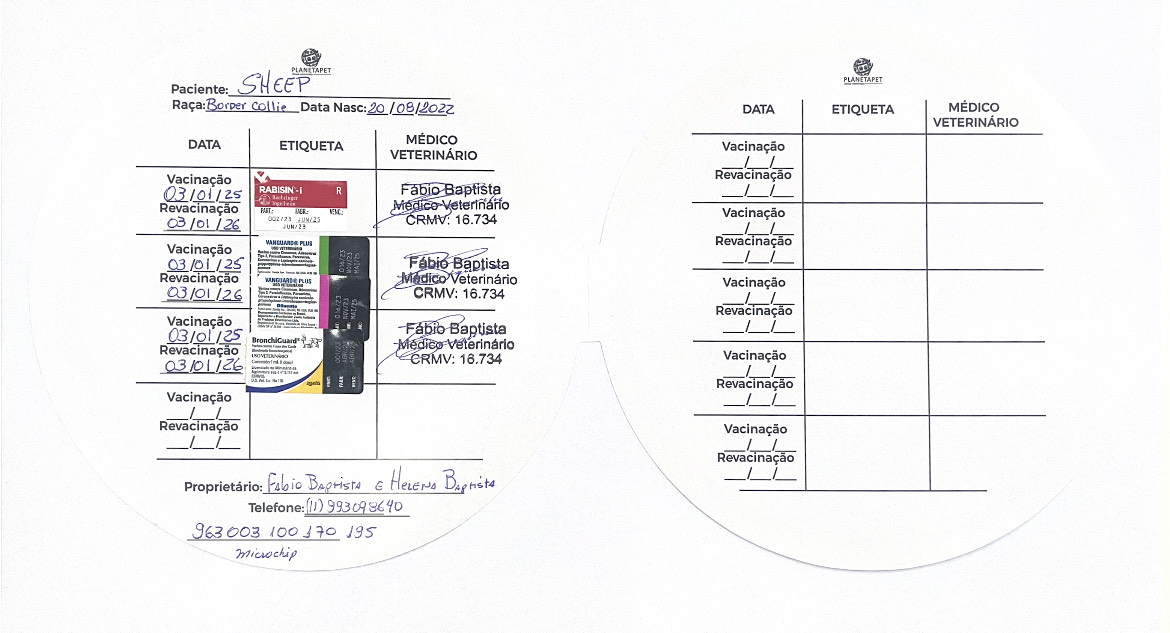 PLANETAPET
Paciente: SHEEP
Raça: Border Collie Data Nasc: 20/08/2022
DATA ETIQUETA MÉDICO VETERINÁRIO
Vacinação
03/01/25
Revacinação
03/01/26
RABISIN®-i R
Boehringer
Ingelheim
PART.: FABR.: VENC.:
002/23 JUN/25
JUN/23
Fábio Baptista
Médico Veterinário
CRMV: 16.734
Vacinação
03/01/25
Revacinação
03/01/26
VANGUARD® PLUS
USO VETERINÁRIO
016/23
NOV/23
MAI/25
VANGUARD® PLUS
USO VETERINÁRIO
Diluente
016/23
NOV/23
MAI/25
Fábio Baptista
Médico Veterinário
CRMV: 16.734
Vacinação
03/01/25
Revacinação
03/01/26
BronchiGuard®
USO VETERINÁRIO
zoetis
PART:
FABR:
VENC:
Fábio Baptista
Médico Veterinário
CRMV: 16.734
Vacinação
__/__/__
Revacinação
__/__/__
Proprietário: Fábio Baptista e Helena Baptista
Telefone: (11) 993098640
963 003 100 170 195
microchip
PLANETAPET
DATA ETIQUETA MÉDICO VETERINÁRIO
Vacinação
__/__/__
Revacinação
__/__/__
Vacinação
__/__/__
Revacinação
__/__/__
Vacinação
__/__/__
Revacinação
__/__/__
Vacinação
__/__/__
Revacinação
__/__/__
Vacinação
__/__/__
Revacinação
__/__/__